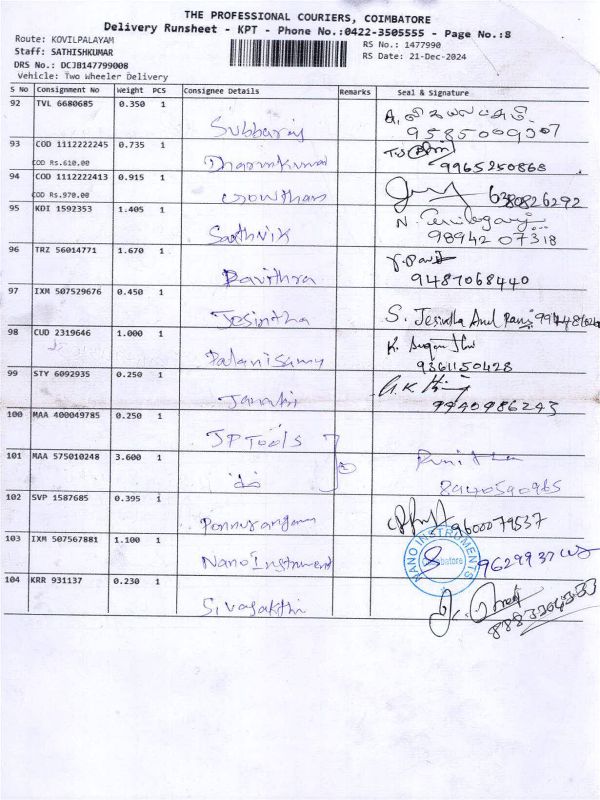 THE PROFESSIONAL COURIERS, COIMBATORE
Delivery Runsheet - KPT - Phone No.:0422-3505555 - Page No.:8
Route: KOVILPALAYAM
RS No.: 1477990
Staff: SATHISHKUMAR
RS Date: 21-Dec-2024
DRS No.: DCJB147799008
Vehicle: Two Wheeler Delivery
S No Consignment No Weight PCS Consignee Details Remarks Seal & Signature
92 TVL 6680685 0.350 1 Subbaraj
93 COD 1112222245 0.735 1 Dharmkumar
COD Rs.610.00 9965250868
94 COD 1112222413 0.915 1 Gowtham
COD Rs.970.00 6380826292
95 KDI 1592353 1.405 1 Sathvik
98942 07318
96 TRZ 56014771 1.670 1 Pavithra
9487068440
97 IXM 507529676 0.450 1 Jesintha S. Jesintha Arul
98 CUD 2319646 1.000 1 Palanisamy
9361150428
99 STY 6092935 0.250 1 Janaki
9940986243
100 MAA 400049785 0.250 1 JP Tools
101 MAA 575010248 3.600 1 Punitha
8940590965
102 SVP 1587685 0.395 1 Ponnurangam 9600079537
103 IXM 507567881 1.100 1 Nano Instrument
NANO INSTRUMENTS
Coimbatore
104 KRR 931137 0.230 1 Sivasakthi